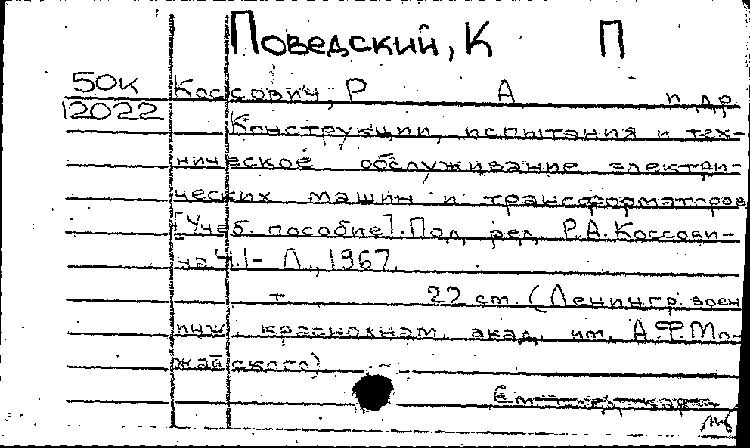 Поведский, К П
50к Коссович, Р А и др
12022
Конструкции, испытания и тех-
ническое обслуживание электри-
ческих машин и трансформаторов
[Учеб. пособие]. Под ред. Р.А. Коссови-
ча Ч.1- Л., 1967.
т 22 cm. (Ленингр. воен
инж. краснознам. акад. им. А.Ф. Мо-
жайского)